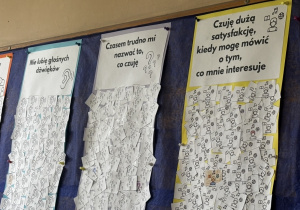 Nie lubię głośnych
dźwięków
Czasem trudno mi
nazwać to,
co czuję
Czuję dużą
satysfakcję,
kiedy mogę mówić
o tym,
co mnie interesuje